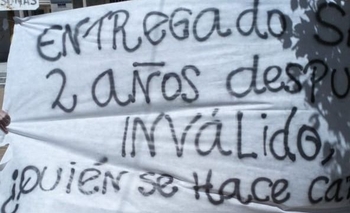 ENTREGADO S
2 AÑOS despu
INVÁLIDO,
¿QUIÉN se Hace ca